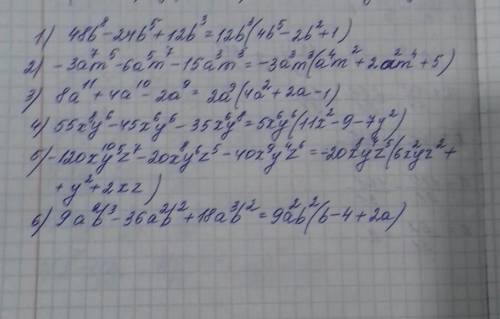 1) 48b⁸-24b⁵+12b³=12b³(4b⁵-2b²+1)
2) -3a⁷m⁵-6a⁵m⁷-15a³m³=-3a³m³(a⁴m²+2a²m⁴+5)
3) 8a¹¹+4a¹⁰-2a⁹=2a⁹(4a²+2a-1)
4) 55x⁸y⁶-45x⁶y⁶-35x⁶y⁸=5x⁶y⁶(11x²-9-7y²)
5) -120x¹⁰y⁵z⁷-20x⁸y⁶z⁵-40x⁹y⁴z⁶=-20x⁸y⁴z⁵(6x²yz²+
+y²+2xz)
6) 9a²b³-36a²b²+18a³b²=9a²b²(b-4+2a)